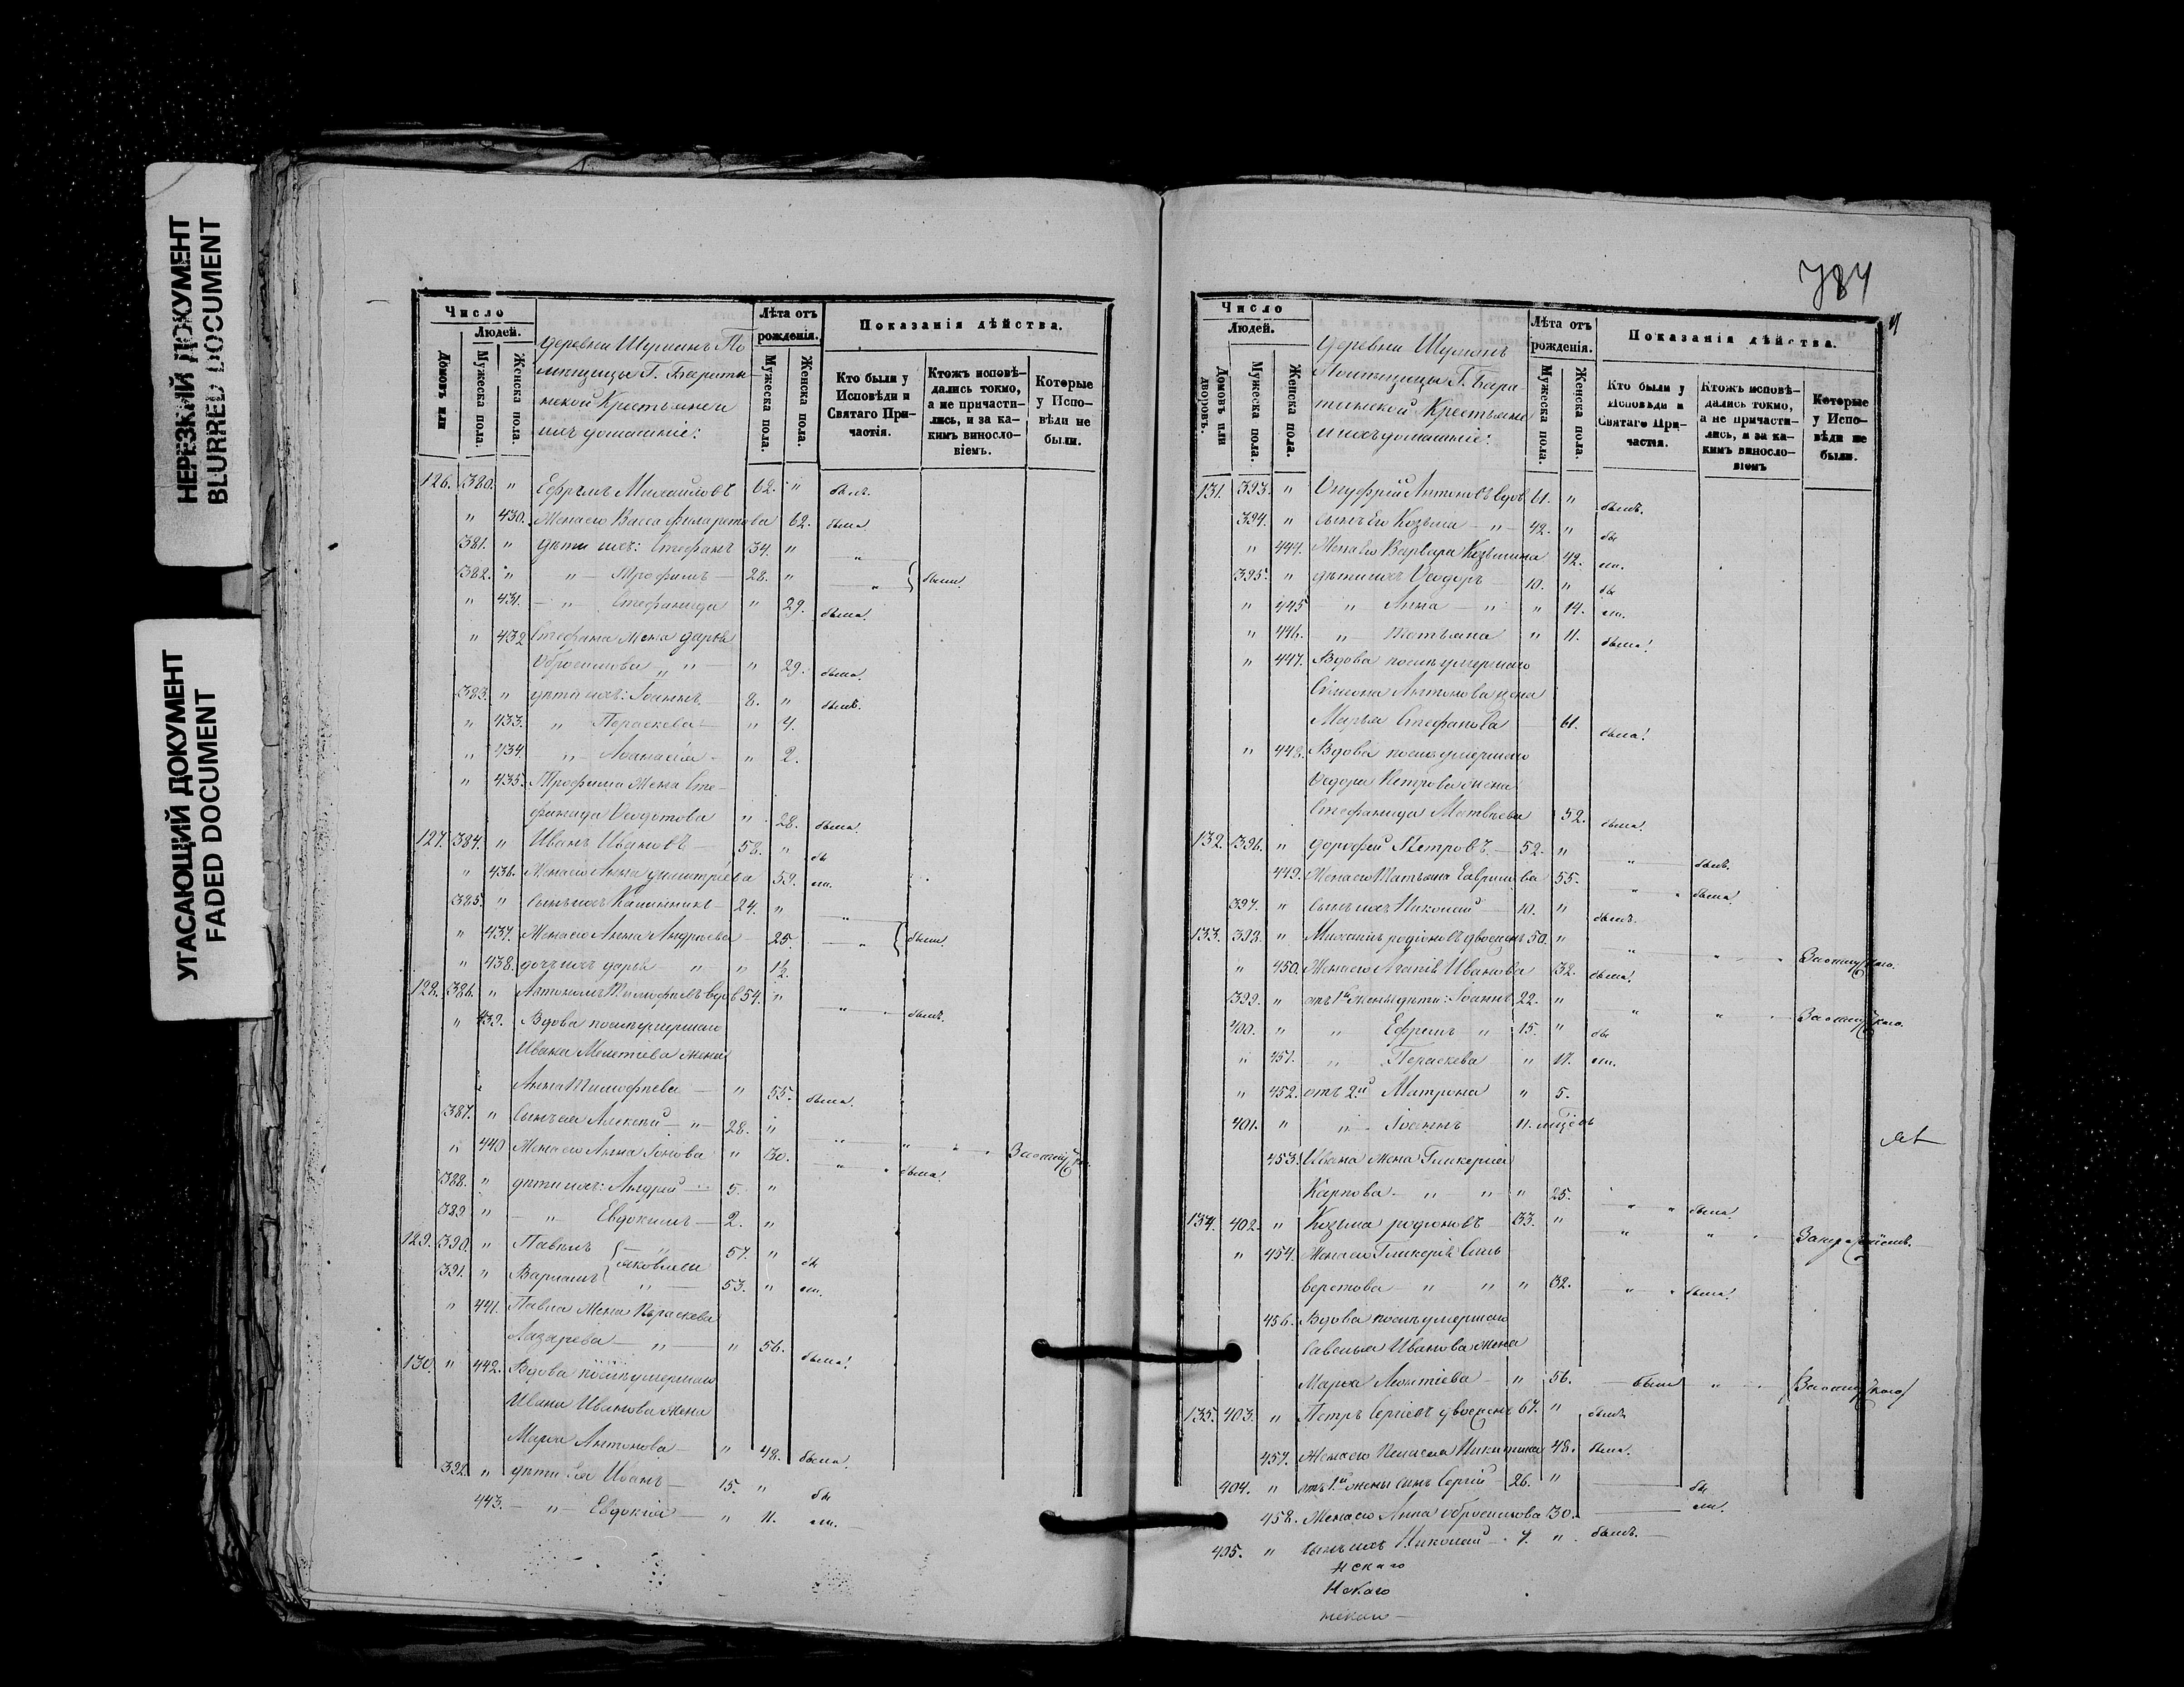 НЕРЕЗКИЙ ДОКУМЕНТ
BLURRED DOCUMENT
УГАСАЮЩИЙ ДОКУМЕНТ
FADED DOCUMENT
Число
Людей.
Домовъ или
Мужеска пола.
Женска пола.
Деревни Шуманъ По
мѣщицы Г. Баратын
ской Крестьяне и
ихъ домашніе:
Лѣта отъ
рожденія.
Мужеска пола.
Женска пола.
Показанія дѣйства.
Кто были у
Исповѣди и
Святаго При-
частія.
Ктожъ исповѣ-
дались токмо,
а не причасти-
лись, и за ка-
кимъ винослo-
віемъ.
Которые
у Испо-
вѣди не
были.
126. 380. " Ефремъ Михаиловъ 62. " былъ.
" 430. Жена его Васса Филаретова 62. была
381. " Дѣти ихъ: Стефанъ 34. " "
382. " " Трофимъ 28. " " были.
" 431. " Стефанида " 29. была.
" 432 Стефана жена Дарья
Обросимова " " 29. была.
383. " Дѣти ихъ: Іоаннъ 8. " былъ.
" 433. " Параскева " 4.
" 434. " Аѳанасія " 2.
" 435. Трофима Жена Сте-
фанида Ѳедотова " 28. была.
127. 384. " Иванъ Ивановъ 58. " бы
" 436. Жена его Анна Димитріева 59. ли.
385. " Сынъ ихъ Калинникъ 24. " "
" 437. Жена его Анна Андреева 25. " были.
" 438. дочь ихъ Дарья " " 1½
128. 386. " Антономъ Тимофѣевъ вдов 54. " " былъ.
" 439. Вдова послѣ умершаго
Ивана Мелетіева жена
Анна Тимофѣева " 55. была.
387. " Сынъ ея Алексѣй " 28. " " " "
" 440 Жена его Анна Іонова " 30. " была.
388. " Дѣти ихъ: Андрей 5. "
389 " " Евдокимъ 2. "
129. 390. " Павелъ " 57. " бы
Яковлевы
391. " Варламъ " 53. " ли.
" 441. Павла Жена Параскева
Лазарева " " 56. была.
130. " 442. Вдова послѣ умершаго
Ивана Иванова жена
Марѳа Антонова " 48. была.
392. " Дѣти ея Иванъ 15. " бы
443. " Евдокія " 11. ли.
784
Число
Людей.
Домовъ или
дворовъ.
Мужеска пола.
Женска пола.
Деревни Шуманъ
Помѣщицы Г. Бара-
тынской Крестьяне
и ихъ домашніе:
Лѣта отъ
рожденія.
Мужеска пола.
Женска пола.
Показанія дѣйства.
Кто были у
Исповѣди и
Святаго При-
частія.
Ктожъ исповѣ-
дались токмо,
а не причасти-
лись, и за ка-
кимъ винослo-
віемъ
Которые
у Испо-
вѣди не
были.
131. 393. " Онуфрій Антоновъ вдов 61. " былъ.
394. " Сынъ Его Козьма " 42. " бы
" 444. Жена его Варвара Козьмина 42. ли.
395. " Дѣти ихъ Ѳеодоръ 10. " бы
" 445 " Анна " " 14. ли.
" 446. " Татьяна " 11. была.
" 447. Вдова послѣ умершаго
Сімеона Антонова жена
Марья Стефанова 61. была.
" 448. Вдова послѣ умершаго
Ѳедора Петрова жена
Стефанида Матвѣева 52. была.
132. 396. " Дорофей Петровъ 52. " " былъ.
449. Жена его Татьяна Гаврилова 55. " " была.
397. " Сынъ ихъ Николай 10. " былъ.
133. 398. " родіоновъ двоежен 50. " " " "
" 450. Жена его Агапія Иванова 32. была.
399. " отъ 1й жены дѣти: Іоаннъ 22. " " " "
400. " " Ефремъ " 15. " бы
" 451. " Параскева " 17. ли.
" 452. отъ 2й Матрона " 5.
401. " " Іоаннъ 11.
453. Ивана жена Гликерія
Карпова " " " 25. " " была.
134. 402. " Козьма родіоновъ 33. " " " "
" 454. Жена его Гликерія Сели
верстова " " " 32. " " была.
456. Вдова послѣ умершаго
Савелья Иванова жена
Марѳа Леонтіева " 56. " "
135. 403. " Петръ Сергіевъ двоежен 67. " былъ
457. Жена его Никитина 48. была.
404. " отъ 1й жены сынъ Сергій 26. " бы
458. Жена его Анна Обросимова 30. ли.
405. " Сынъ ихъ Николай 7. " былъ.
нскаго
нскаго